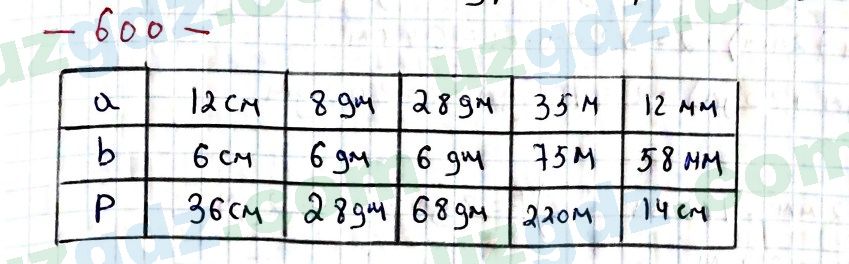 - 600 -
a 12 см 8 дм 28 дм 35 м 12 мм
b 6 см 6 дм 6 дм 75 м 58 мм
P 36 см 28 дм 68 дм 220 м 14 см
uzgdz.com